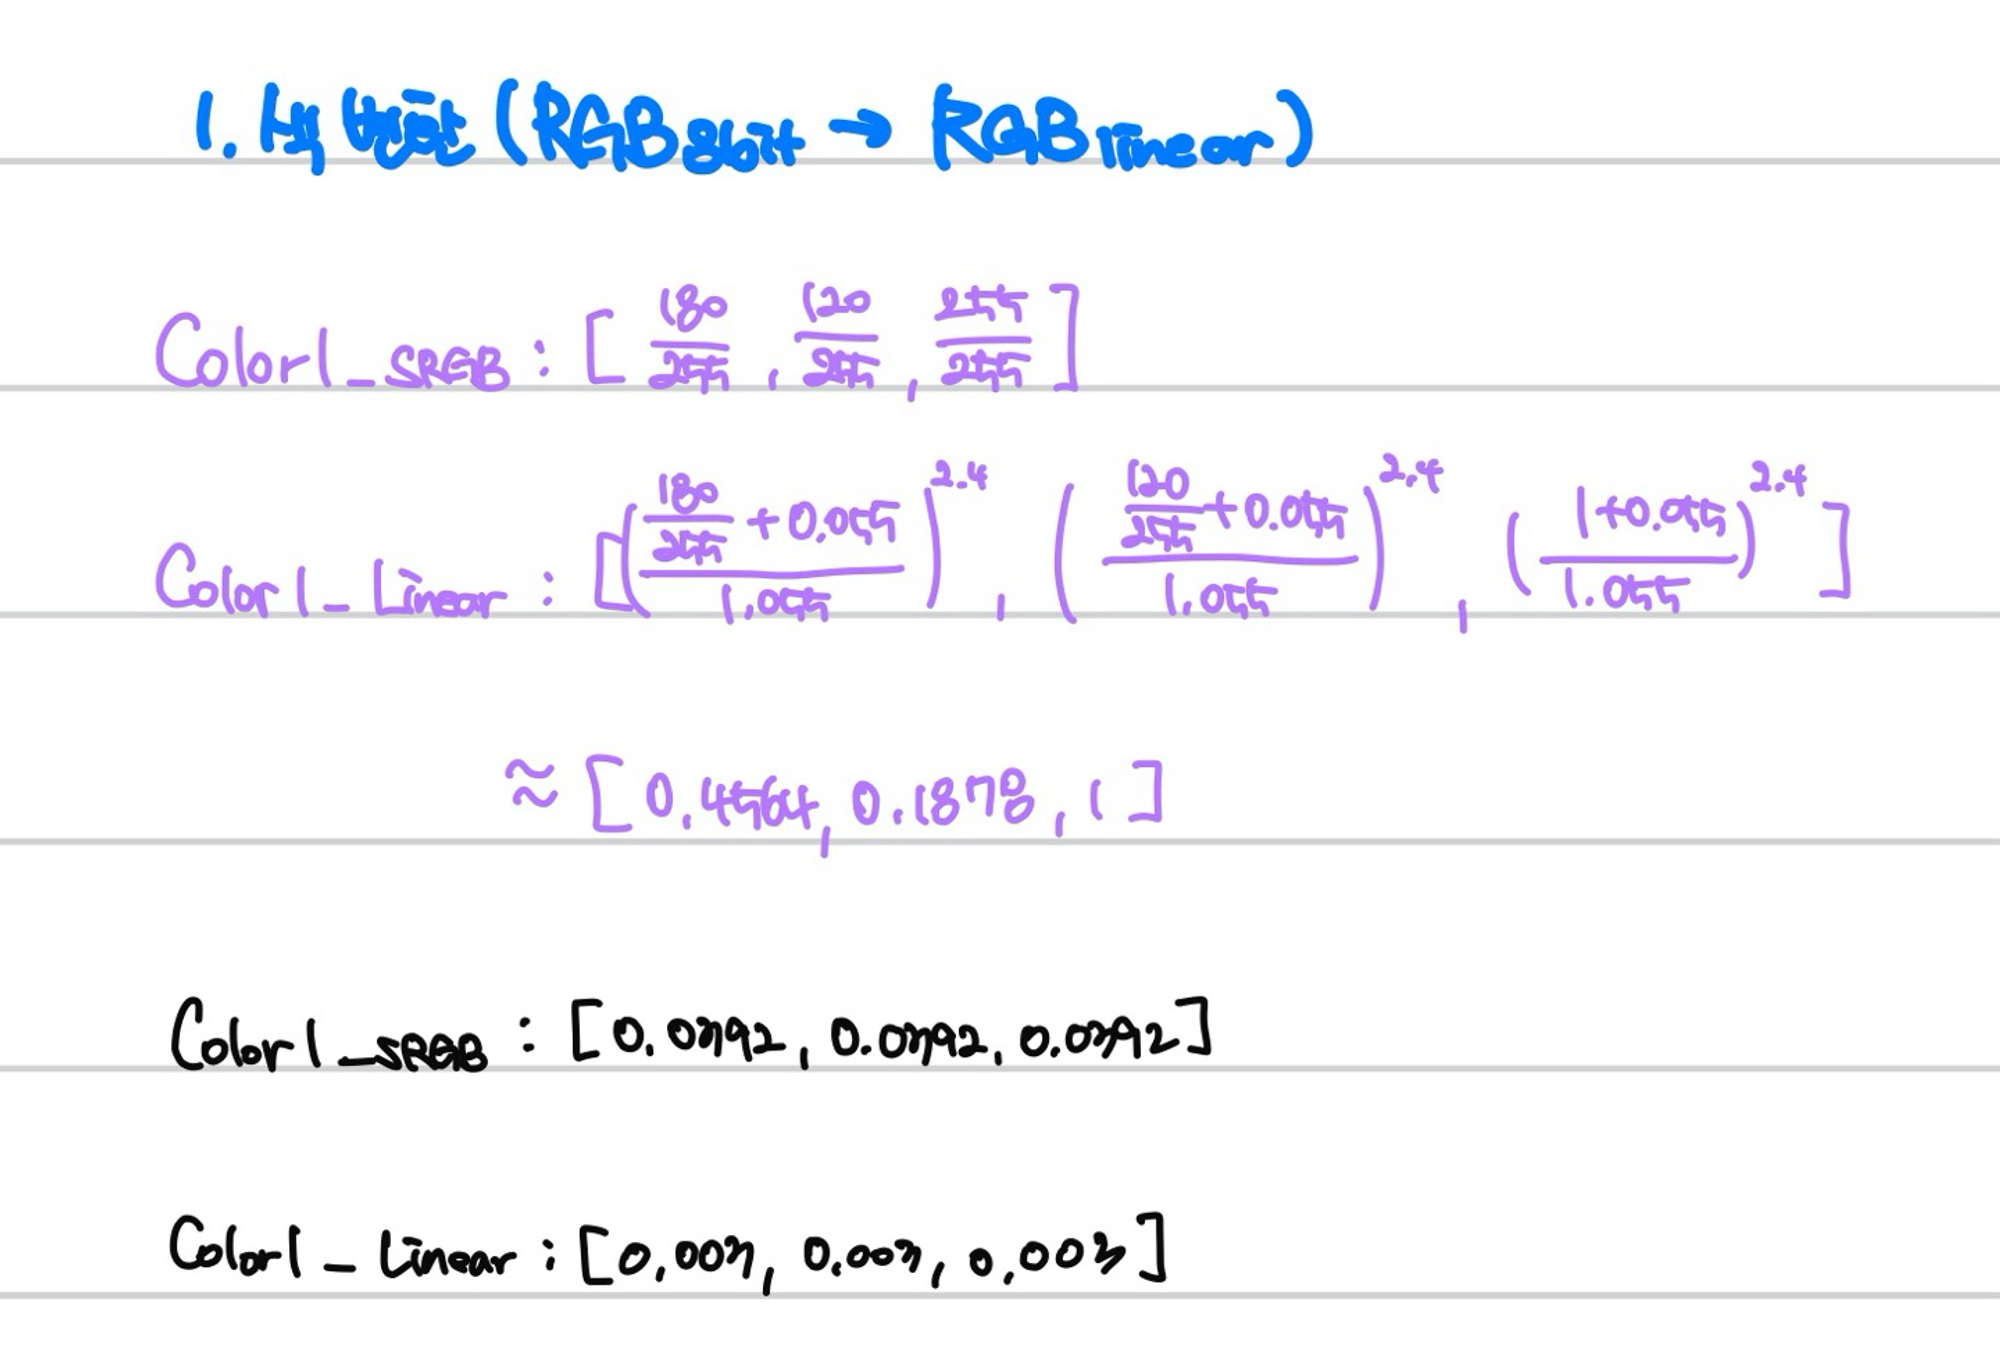 1. 색 변환 (RGB8bit → RGBlinear)
Color1_SRGB : [ 180/255 , 120/255 , 255/255 ]
Color1_Linear : [ ((180/255 + 0.055)/1.055)^2.4 , ((120/255 + 0.055)/1.055)^2.4 , ((1+0.055)/1.055)^2.4 ]
≈ [ 0.4564, 0.1878, 1 ]
Color1_SRGB : [0.0392, 0.0392, 0.0392]
Color1_Linear : [0.003, 0.003, 0.003]